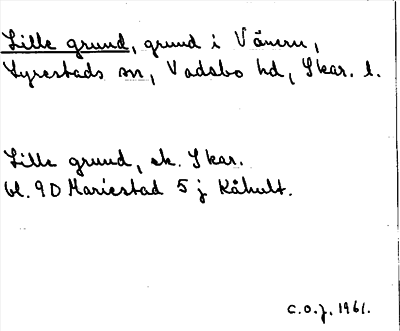 Lille grund, grund i Vänern,
Lyrestads sn, Vadsbo hd, Skar. l.
Lille grund, ek. Skar.
bl. 9D Mariestad 5 j Kåhult.
C.O.J. 1961.